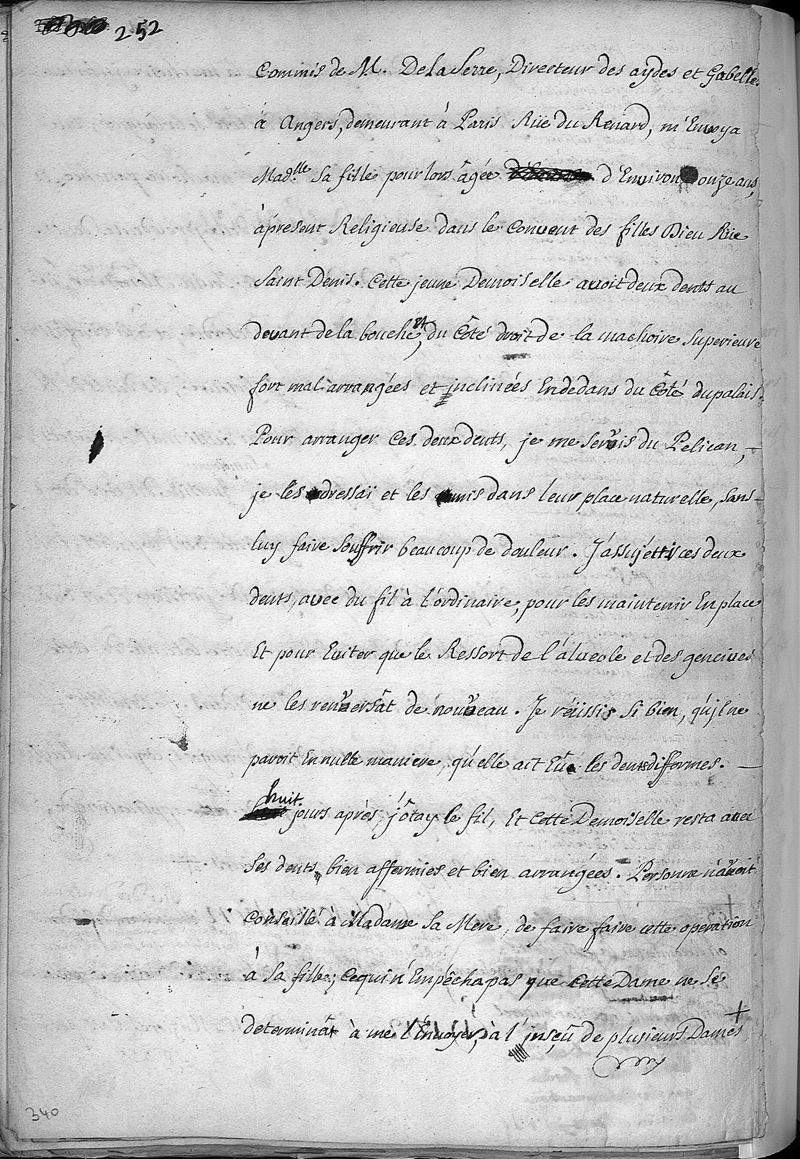 252
Commis de M. DelaSerre, Directeur des aydes et Gabelle
à Angers, demeurant à Paris Rüe du Renard, m'Envoya
Mad.lle sa fille pour lors âgée d'Environ onze ans,
àpresent Religieuse dans le Convent des filles Dieu Rüe
Saint Denis. Cette jeune Demoiselle avoit deux dents au
devant de la bouche, du Côté droit de la machoire Superieure
fort mal arrangées et inclinées En dedans du Côté du palais.
Pour arranger Ces deux dents, je me servis du Pelican,
je les redressai et les remis dans leur place naturelle, sans
luy faire souffrir beaucoup de douleur. J'assujettis ces deux
dents, avec du fil à l'ordinaire, pour les maintenir En place
Et pour Eviter que le Ressort de l'álveole et des gencives
ne les renversât de nouveau. Je réüssis si bien, qu'il ne
paroit En nulle maniere, qu'elle ait Eüe les dents difformes.
huit jours après, j'ôtay le fil, Et Cette Demoiselle resta avec
ses dents bien affermies et bien arrangées. Personne n'avoit
Conseillé à Madame sa Mere, de faire faire cette operation
à sa fille; Ce qui n'Empêcha pas que Cette Dame ne se
determinât à me l'Envoyer, à l'insçû de plusieurs Dames
340